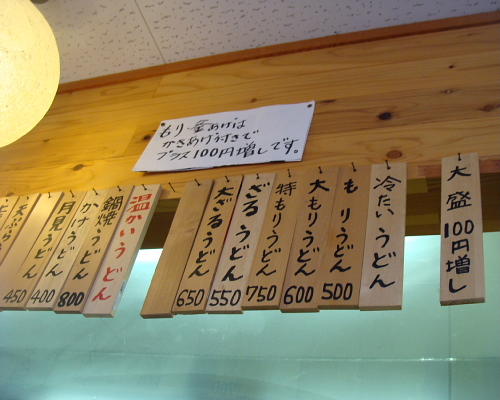 もり・釜あげは
かきあげ付きで
プラス100円増しです。
大盛100円増し
冷たいうどん
もりうどん500
大もりうどん600
特もりうどん750
ざるうどん550
大ざるうどん650
温かいうどん
鍋焼うどん800
かけうどん400
月見うどん450
天ぷら